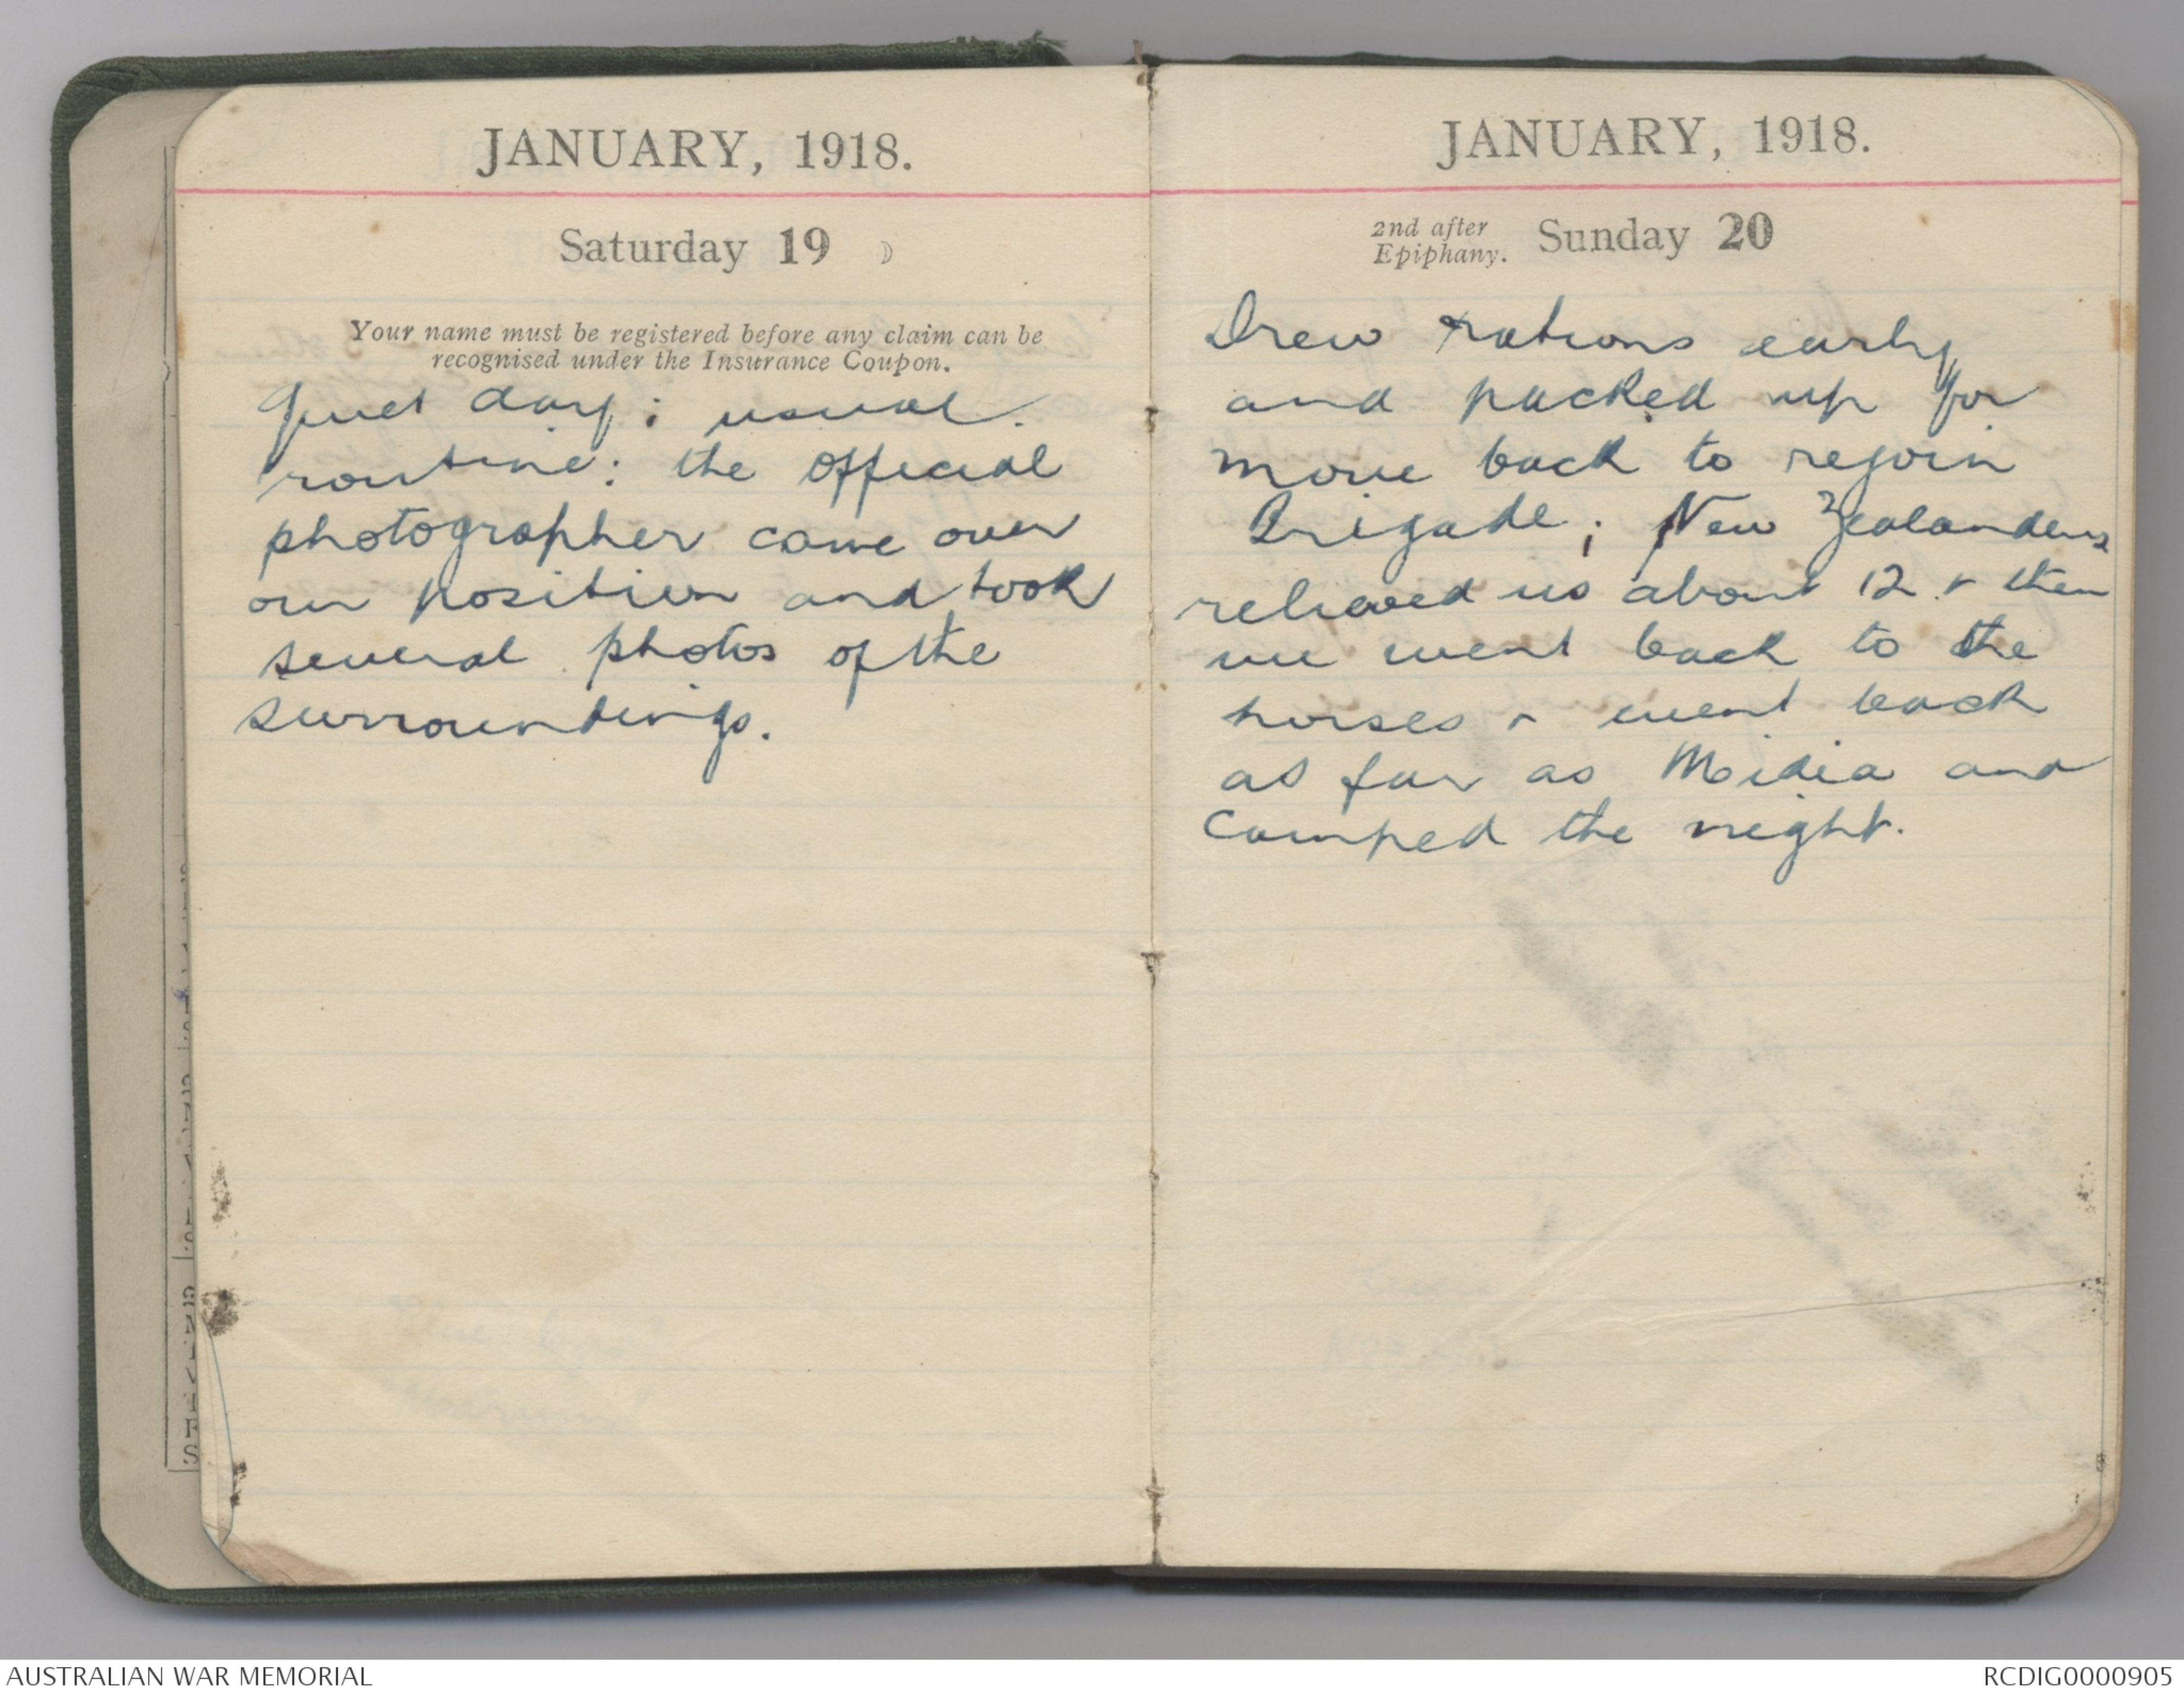 JANUARY, 1918.
Saturday 19
Your name must be registered before any claim can be
recognised under the Insurance Coupon.
Quiet day; usual
routine: the official
photographer came over
our position and took
several photos of the
surroundings.
JANUARY, 1918.
2nd after
Epiphany. Sunday 20
Drew rations early
and packed up for
move back to rejoin
Brigade; New Zealanders
relieved us about 12 & then
we went back to the
horses & went back
as far as Midia and
camped the night.
AUSTRALIAN WAR MEMORIAL
RCDIG0000905